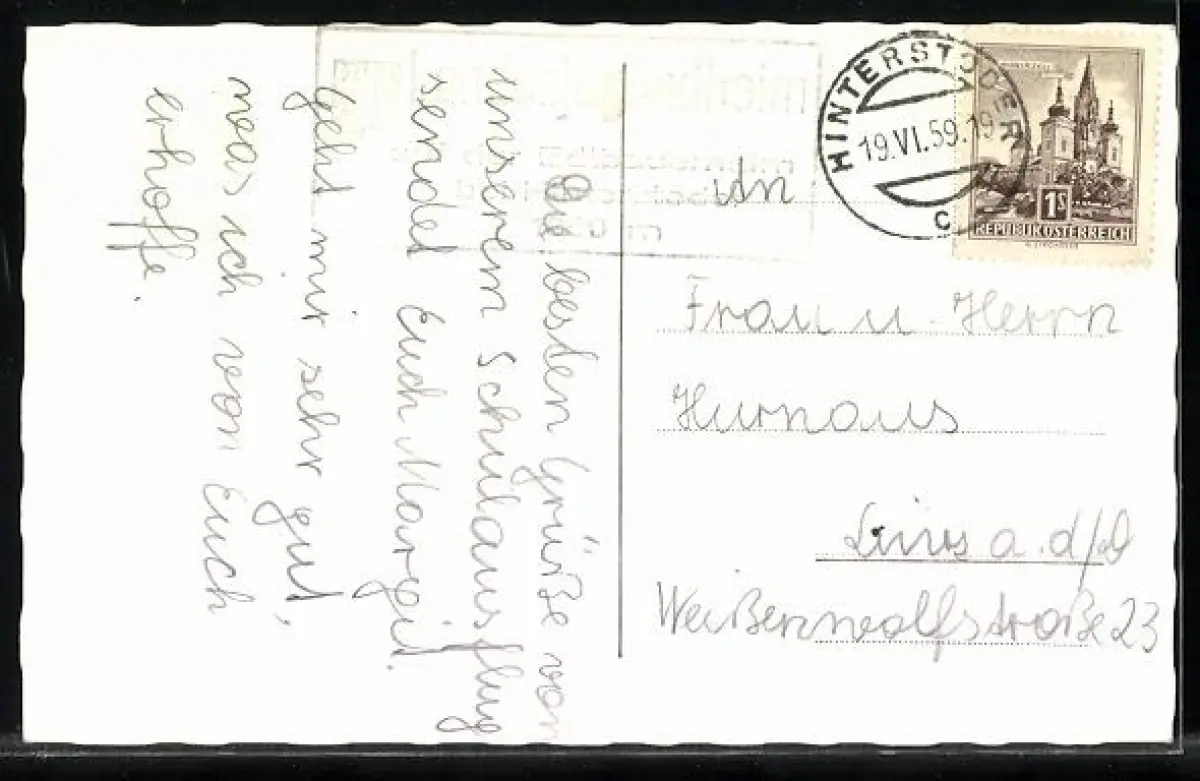 Die besten Grüße von
unserem Schulausflug
sendet Euch Margit.
Geht mir sehr gut,
was ich von Euch
erhoffe.
HINTERSTODER
19.VI.59.19
c
1S
REPUBLIK ÖSTERREICH
An
Frau u. Herrn
Hurnaus
a. d/D
Weißenwolfstraße 23